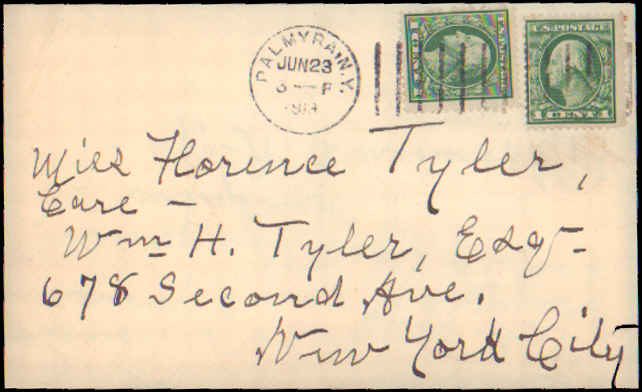 PALMYRA, N.Y.
JUN 23
U.S. POSTAGE
1 CENT 1
Miss Florence Tyler,
Care —
Wm H. Tyler, Esq-
678 Second Ave.
New York City